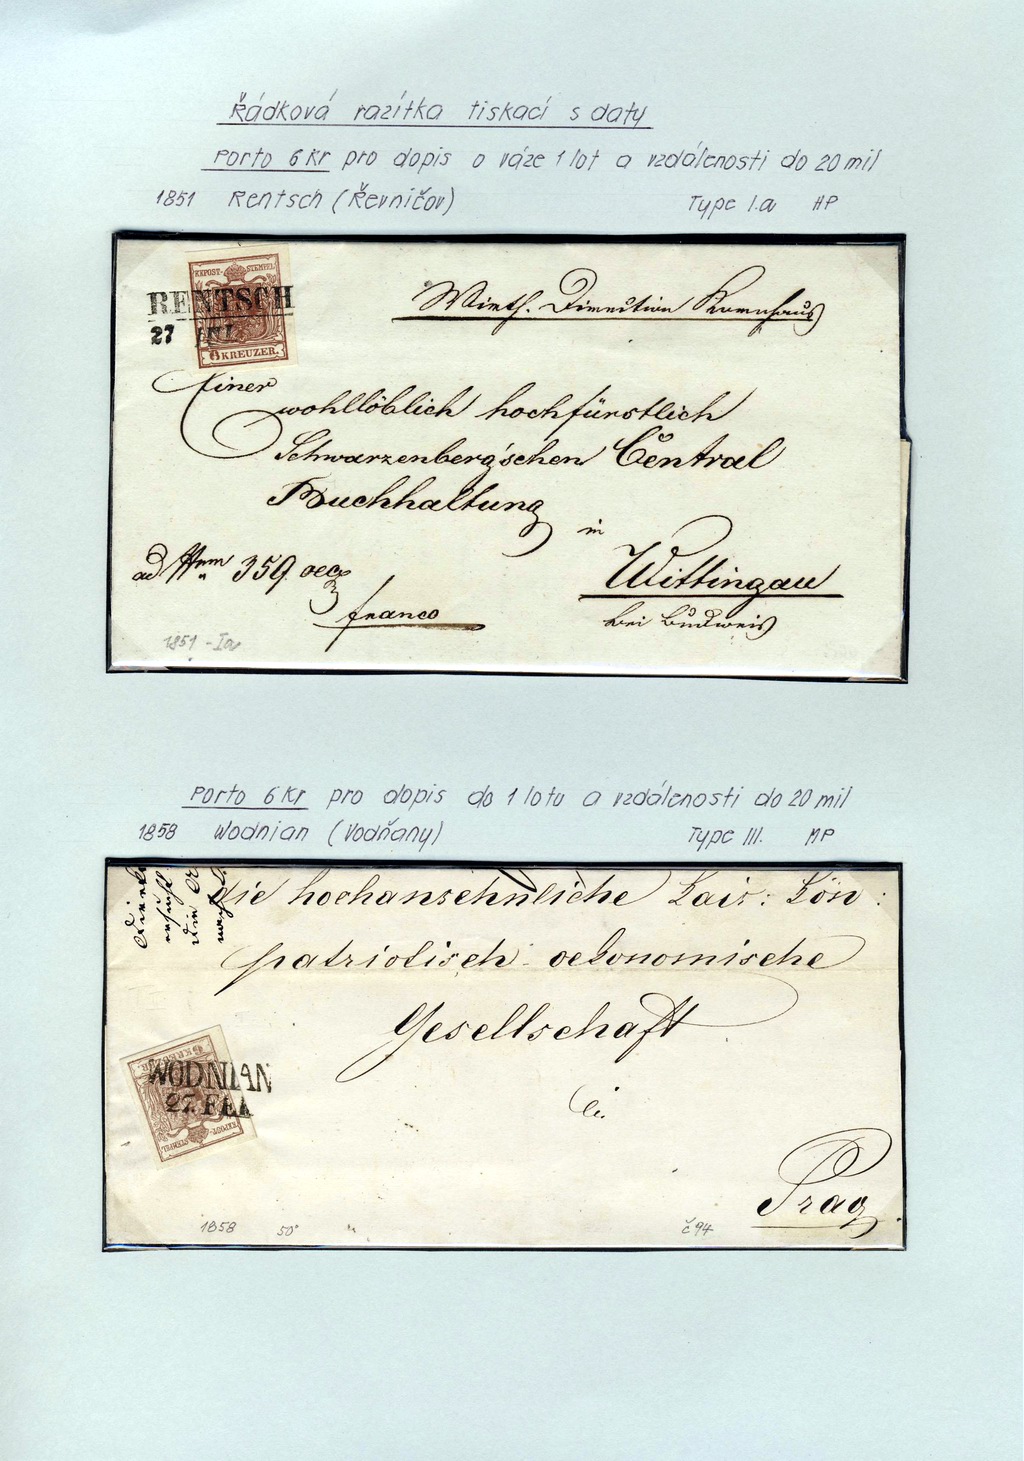 Řádková razítka tiskací s daty
Porto 6 Kr pro dopis o váze 1 lot a vzdálenosti do 20 mil
1851 Rentsch (Řevničov) Type I.a HP
K.K.POST-STEMPEL
RENTSCH
27 JUL
6 KREUZER.
Wirth. Direction Kornhaus
Einer
wohllöblich hochfürstlich
Schwarzenberg'schen Central
Buchhaltung
in
Wittingau
bei Budweis
ad Num 359 oec
franco
1851 - Ia
Porto 6 Kr pro dopis do 1 lotu a vzdálenosti do 20 mil
1858 Wodnian (Vodňany) Type III. MP
die hochansehnliche Kais: Kön:
patriotisch-oekonomische
Gesellschaft
WODNIAN
27. FEB
6 KREUZER
K.K.POST-STEMPEL
Prag
1858 50° č 94